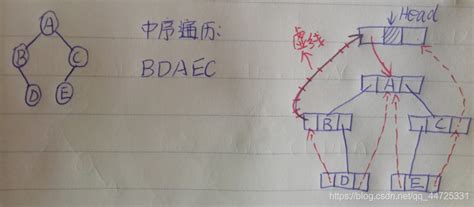 Head
A
B
C
D
E
中序遍历:
BDAEC
虚线
A
B
C
D
E
https://blog.csdn.net/qq_44725331